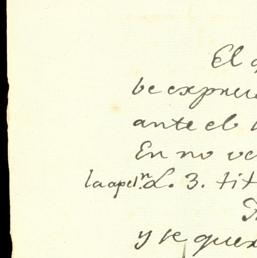 El
be expre
ante el
En no ve
la apel.ⁿ L. 3. tit
y se quex